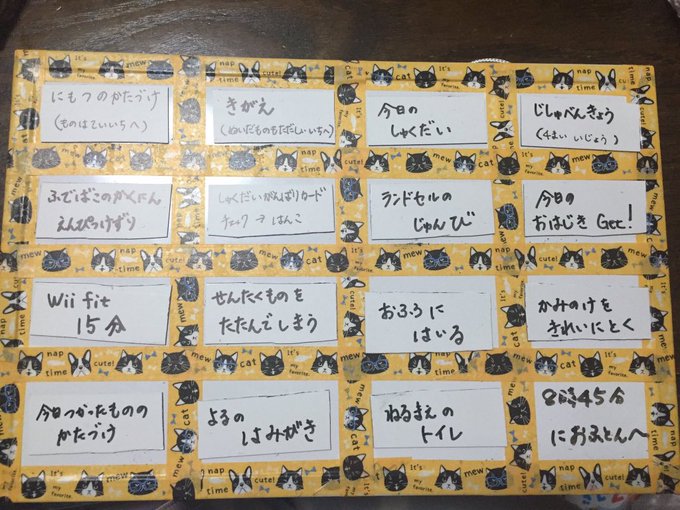 にもつのかたづけ
(ものはていいちへ)
きがえ
(ぬいだものもただしいいちへ)
今日の
しゅくだい
じしゅべんきょう
(4まい いじょう)
ふでばこのかくにん
えんぴつけずり
しゅくだいがんばりカード
チェック→はんこ
ランドセルの
じゅんび
今日の
おはじきGet!
Wii fit
15分
せんたくものを
たたんでしまう
おふろに
はいる
かみのけを
きれいにとく
今日つかったものの
かたづけ
よるの
はみがき
ねるまえの
トイレ
8時45分
におふとんへ
it's
my favorite.
mew
nap time
cute!
cat